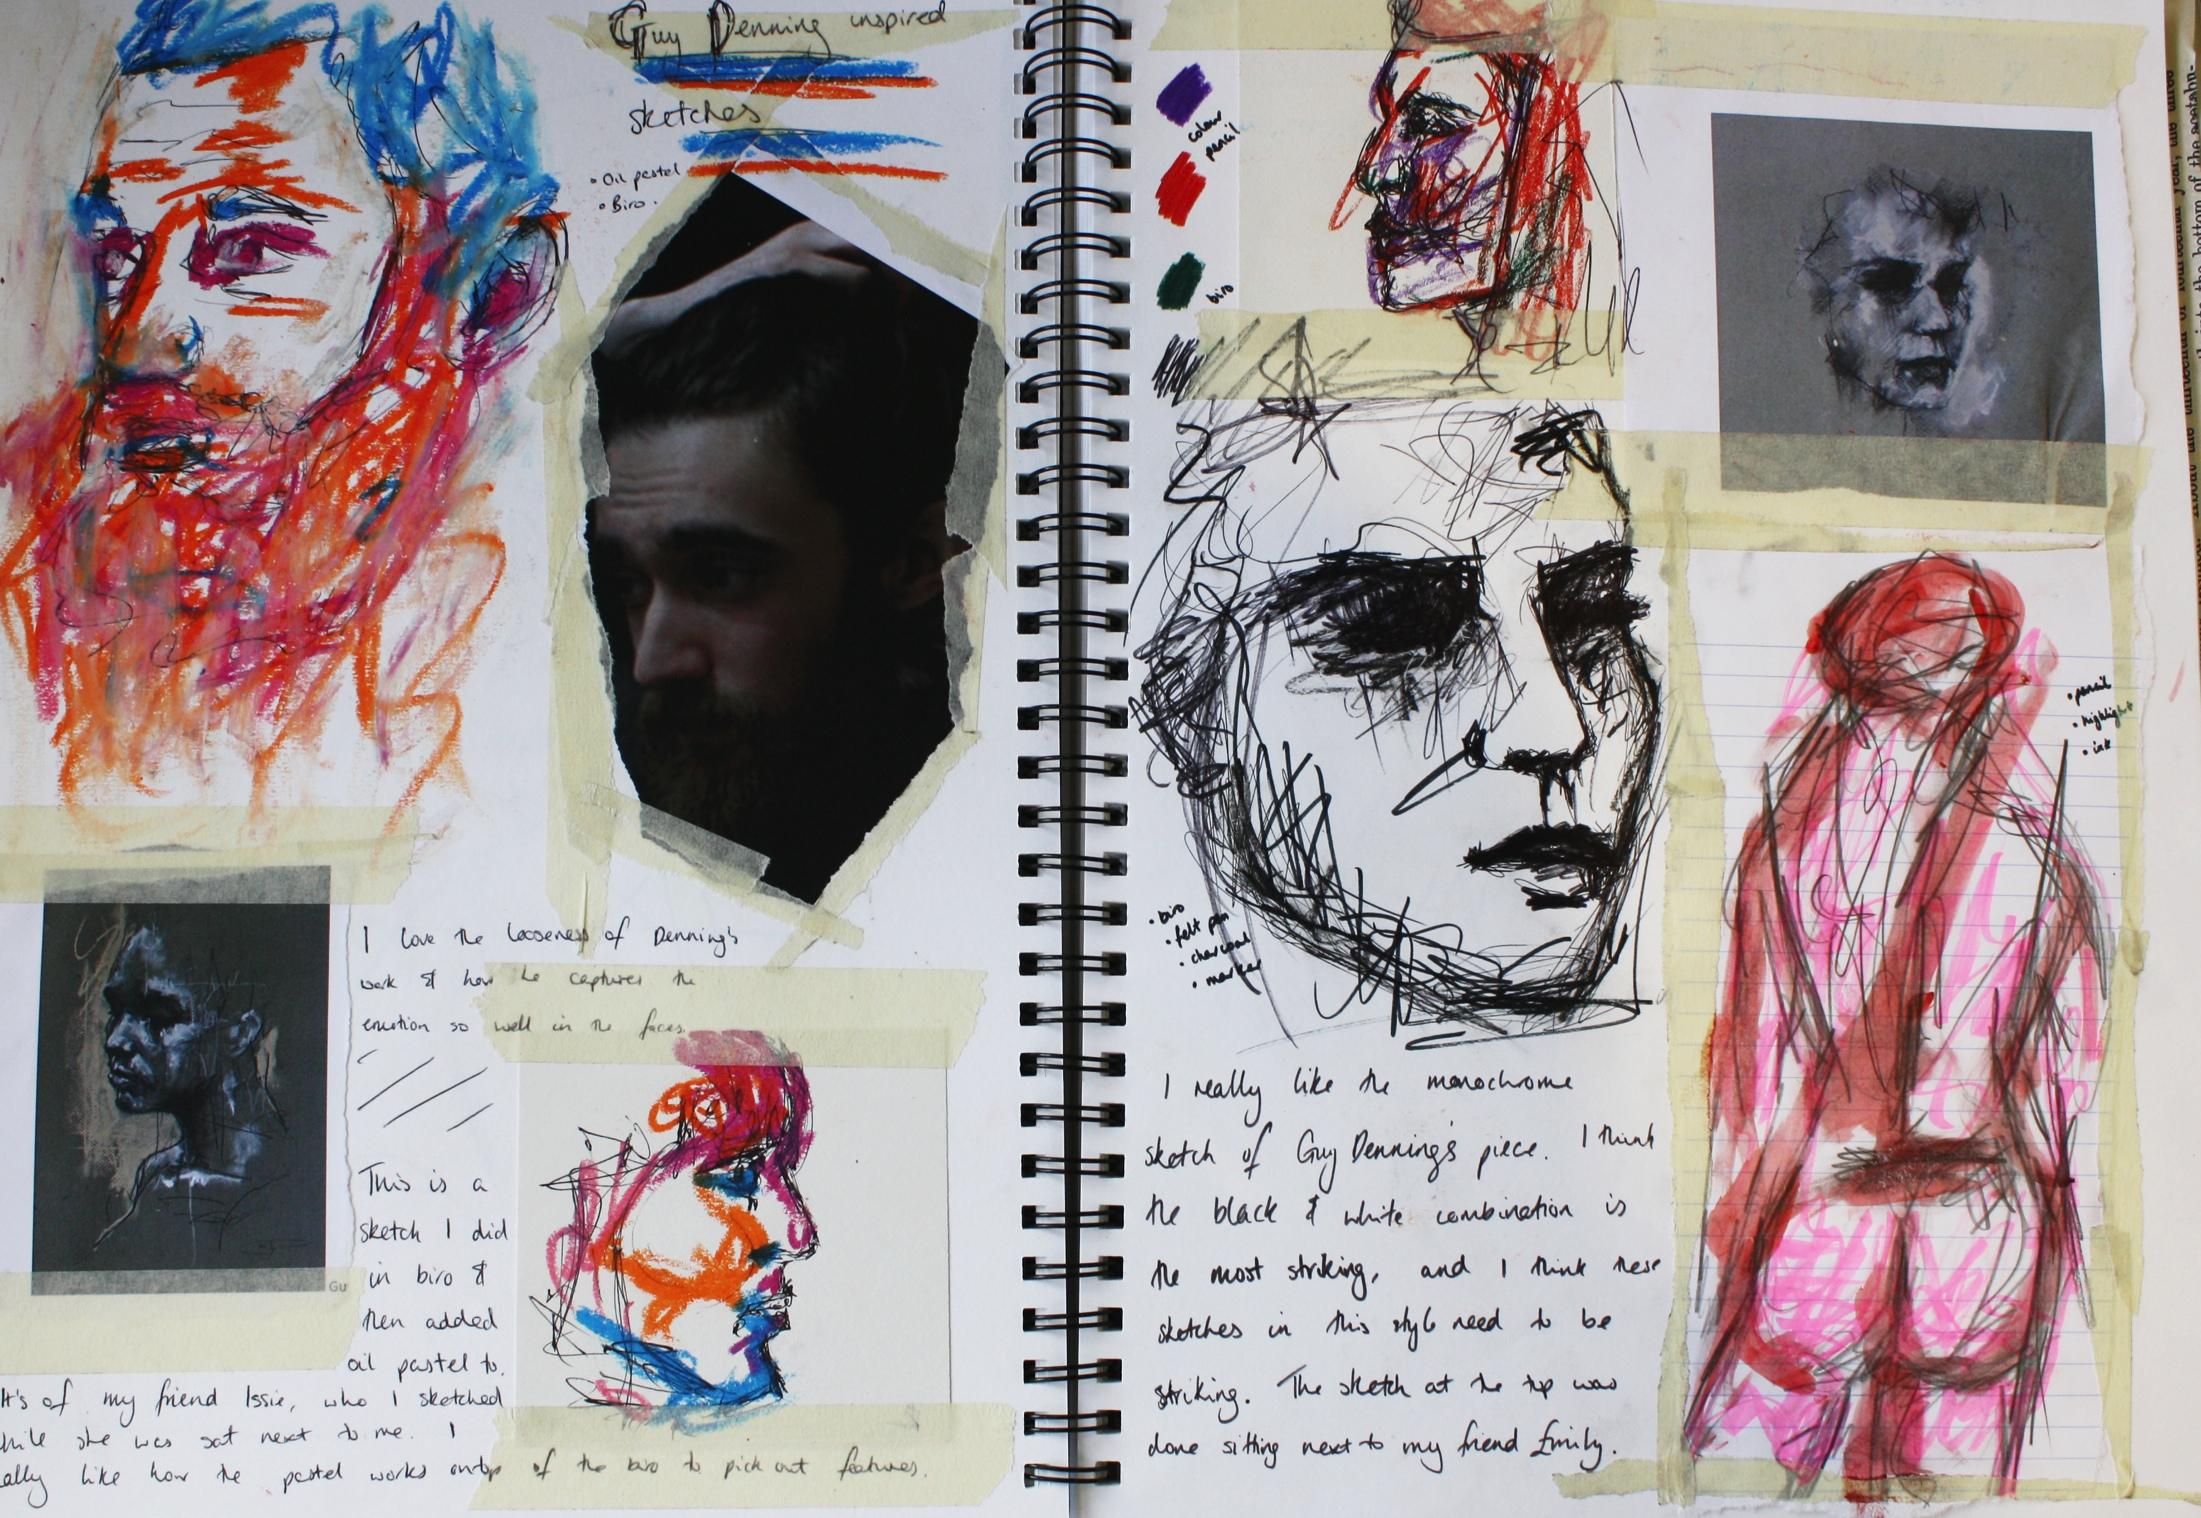 Guy Denning inspired
sketches
• Oil pastel
• Biro.
I love the looseness of Denning's
work & how he captures the
emotion so well in the faces.
This is a
sketch I did
in biro &
then added
oil pastel to.
It's of my friend Issie, who I sketched
while she was sat next to me. I
really like how the pastel works ontop of the biro to pick out features.
Gu
colour
pencil
biro
• biro
• felt pen
• charcoal
• marker
I really like the monochrome
sketch of Guy Denning's piece. I think
the black & white combination is
the most striking, and I think these
sketches in this style need to be
striking. The sketch at the top was
done sitting next to my friend Emily.
• pencil
• highlight
• ink
bottom of the